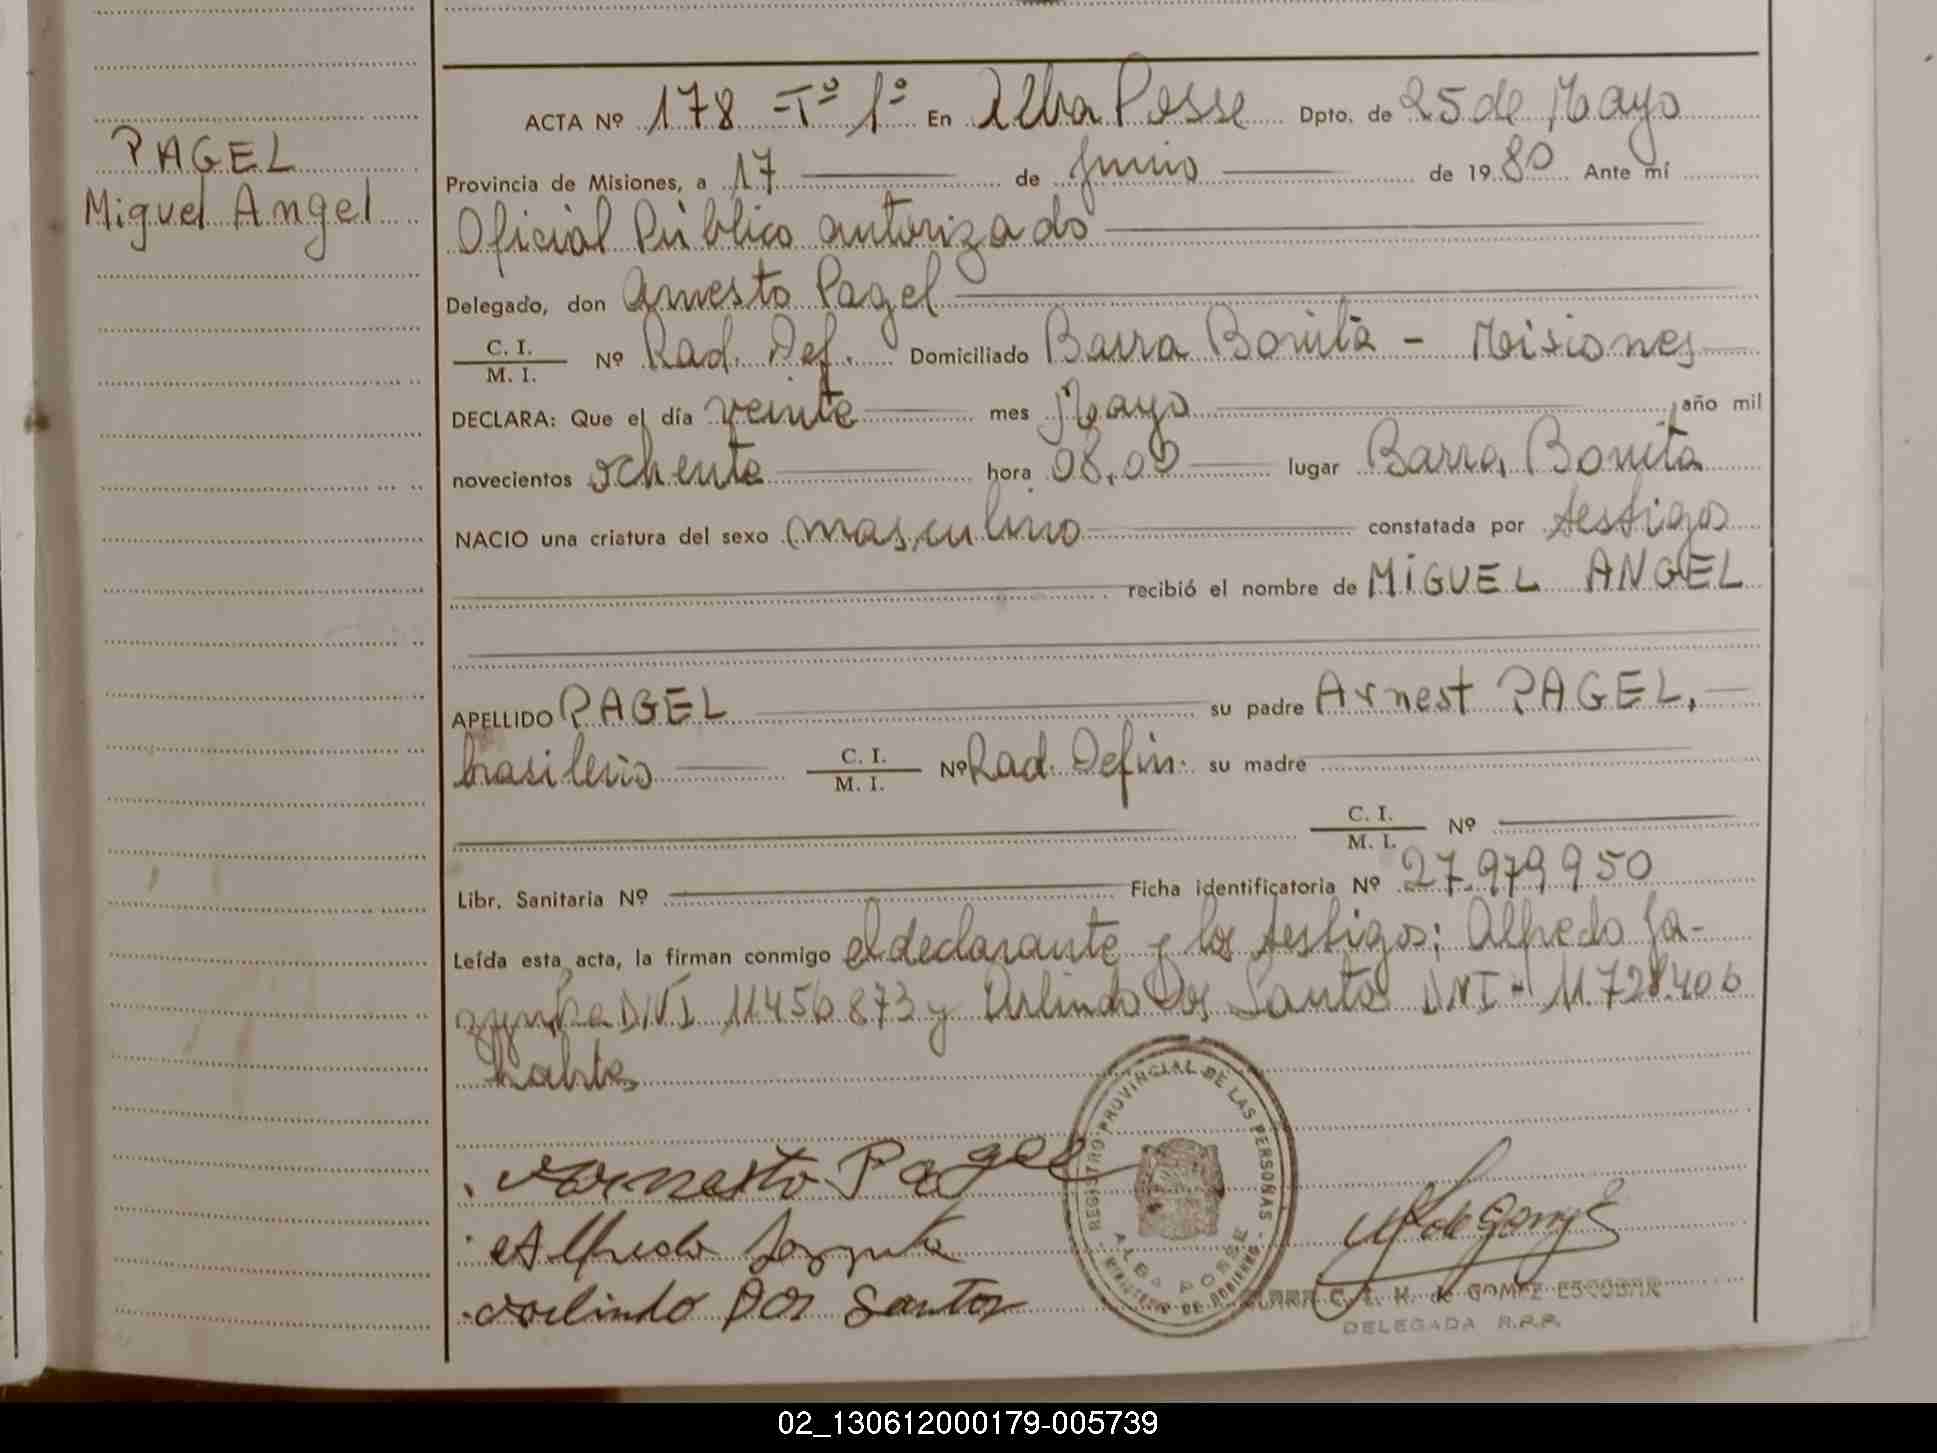 PAGEL
Miguel Angel
ACTA Nº 178 -Tº 1º En Alba Posse Dpto. de 25 de Mayo
Provincia de Misiones, a 17 de Junio de 1980 Ante mí
Oficial Público autorizado
Delegado, don Arnesto Pagel
C. I.
M. I. Nº Rad. Def. Domiciliado Barra Bonita - Misiones
DECLARA: Que el día veinte mes Mayo año mil
novecientos ochenta hora 08,00 lugar Barra Bonita
NACIO una criatura del sexo masculino constatada por testigos
recibió el nombre de MiGUEL ANGEL
APELLIDO PAGEL su padre Arnest PAGEL,
brasilerio C. I.
M. I. Nº Rad. Defin. su madre
C. I.
M. I. Nº
Libr. Sanitaria Nº Ficha identificatoria Nº 27.979950
Leída esta acta, la firman conmigo el declarante y los testigos; Alfredo
DNI 11456873 y Orlindo Dos Santos DNI - 11.728.406
. Arnesto Pagel
. Alfredo
. Orlindo Dos Santos
REGISTRO PROVINCIAL DE LAS PERSONAS
ALBA POSSE
MINISTERIO DE GOBIERNO
C. I. H. de GOMEZ ESCOBAR
DELEGADA R.P.P.
02_130612000179-005739